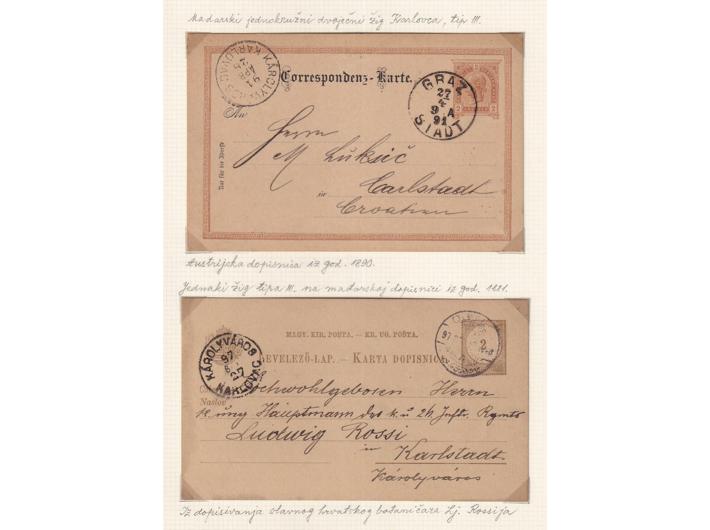 Mađarski jednokružni dvojezični žig Karlovca, tip III.
KÁROLYVÁROS KARLOVAC
91
Correspondenz-Karte.
GRAZ
27
4
9 A
91
STADT
2 2
An
Herrn
M Lukšić
in Carlstadt
Croatien
Nur für die Adresse
Austrijska dopisnica iz god. 1890.
Jednaki žig tipa III. na mađarskoj dopisnici iz god.
MAGY. KIR. POSTA. – KR. UG. POŠTA.
LEVELEZŐ-LAP. – KARTA DOPISNICA
2
97
KÁROLYVÁROS
97
27
KARLOVAC
Naslov
Hochwohlgeboren Herrn
k. ung Hauptmann des k. u 26 Inftr. Rgmts
Ludwig Rossi
in Karlstadt
Károlyváros
Iz dopisivanja slavnog hrvatskog botaničara Lj. Rossija